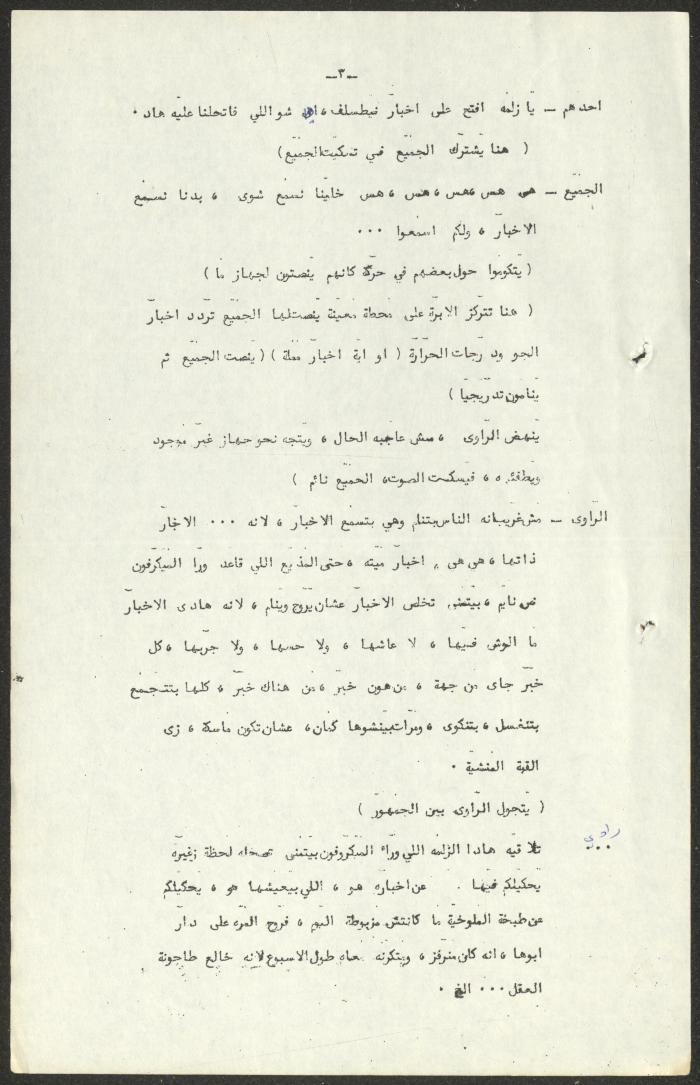 ــ٣ــ
احدهم ــ يا زلمه افتح على اخبار شو اللي فاتحلنا عليه هاد ٠
( هنا يشترك الجميع في تسكيت الجميع)
الجميع ــ هس ،هس ،هس ،هس خلينا نسمع شوى ، بدنا نسمع
الاخبار ، ولكم اسمعوا ٠٠٠
( يتكوموا حول بعضهم في حركة كانهم ينصتون لجهاز ما )
( هنا تتركز الابرة على محطة معينة ينصت لها الجميع تردد اخبار
الجو ودرجات الحرارة ( او اية اخبار مملة ) ( ينصت الجميع ثم
ينامون تدريجيا )
ينهض الراوى ، مش عاجبه الحال ، ويتجه نحو جهاز غير موجود
ويطفئه ، فيسكت الصوت، الجميع نائم )
الراوى ــ مش غريب انه الناس بتنام وهي بتسمع الاخبار ، لانه ٠٠٠ الاخبار
ذاتها ، هي هي ، اخبار ميته ، حتى المذيع اللي قاعد ورا الميكرفون
نايم ، بيتمنى تخلص الاخبار عشان يروح وينام ، لانه هادى الاخبار
ما الوش فيها ، لا عاشها ، ولا حسها ، ولا جربها ، كل
خبر جاى من جهة ، من هون خبر ، من هناك خبر ، كلها بتتجمع
بتنغسل ، بتنكوى ، ومرات بينشوها كمان ، عشان تكون ماسكة ، زى
القبة المنشية ٠
( يتجول الراوى بين الجمهور )
راوي
تلاقيه هادا الزلمه اللي وراء الميكروفون بيتمنى تصحله لحظة زغيره
يحكيلكم فيها عن اخباره هو ، اللي بيعيشها هو ، يحكيلكم
عن طبخة الملوخية ما كانتش مزبوطة اليوم ، فروح المره على دار
ابوها ، انه كان منرفز ، وبتكرنه معاه طول الاسبوع لانه خالع طاحونة
العقل ٠٠٠ الخ ٠